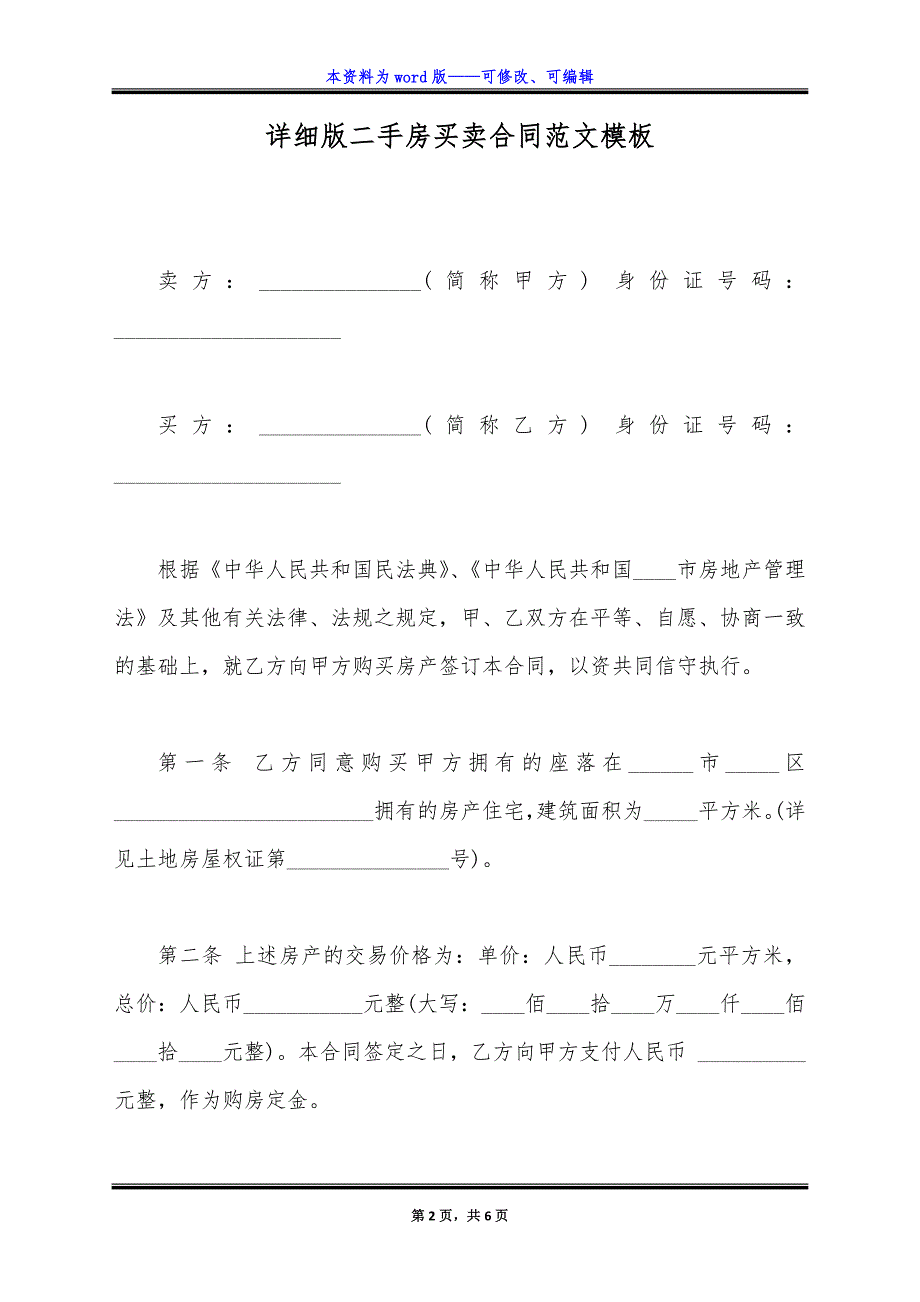 本资料为 word 版——可修改、可编辑
详细版二手房买卖合同范文模板
卖方：_______________(简称甲方) 身份证号码：
_____________________
买方：_______________(简称乙方) 身份证号码：
_____________________
根据《中华人民共和国民法典》、《中华人民共和国____市房地产管理
法》及其他有关法律、法规之规定，甲、乙双方在平等、自愿、协商一致
的基础上，就乙方向甲方购买房产签订本合同，以资共同信守执行。
第一条 乙方同意购买甲方拥有的座落在______市_____区
________________________拥有的房产住宅,建筑面积为_____平方米。(详
见土地房屋权证第_______________号)。
第二条 上述房产的交易价格为：单价：人民币________元平方米，
总价：人民币___________元整(大写：____佰____拾____万____仟____佰
____拾____元整)。本合同签定之日，乙方向甲方支付人民币 __________
元整，作为购房定金。
第 2 页，共 6 页